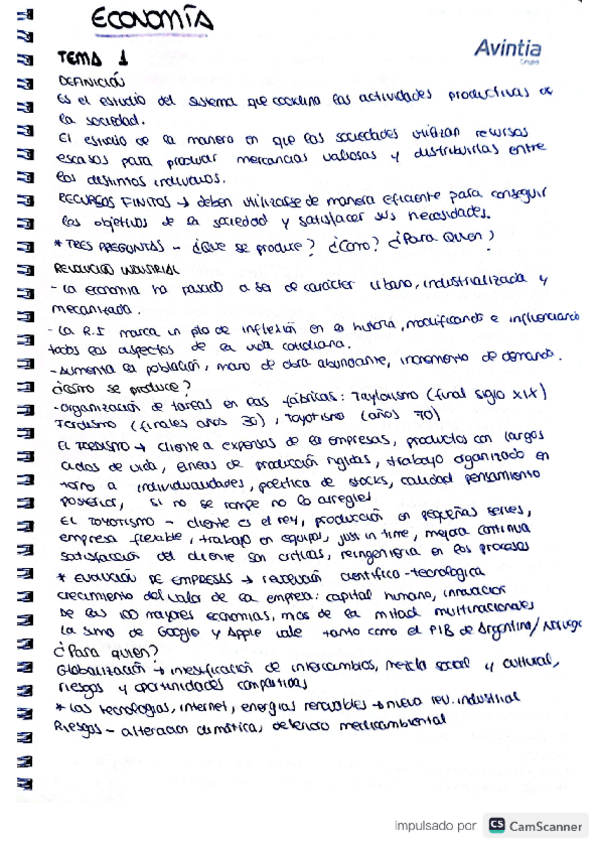 ECONOMÍA
Avintia
Grupo
TEMA 1
DEFINICIÓN
Es el estudio del sistema que coordina las actividades productivas de
la sociedad.
El estudio de la manera en que las sociedades utilizan recursos
escasos para producir mercancias valiosas y distribuirlas entre
los distintos individuos.
RECURSOS FINITOS → deben utilizarse de manera eficiente para conseguir
los objetivos de la sociedad y satisfacer sus necesidades.
* TRES PREGUNTAS - ¿Que se produce? ¿Como? ¿Para Quien?
REVOLUCION INDUSTRIAL
- La economia ha pasado a ser de carácter urbano, industrializada y
mecanizada.
- La R.I marca un pto de inflexión en la historia, modificando e influenciando
todos los aspectos de la vida cotidiana.
- Aumenta la población, mano de obra abundante, incremento de demanda.
¿Cómo se produce?
- Organización de tareas en las fábricas: Taylorismo (final siglo XIX)
Fordismo (finales años 30), Toyotismo (años 70)
EL FORDISMO → cliente a expensas de la empresas, productos con largos
ciclos de vida, lineas de producción rigidas, trabajo organizado en
torno a individualidades, política de stocks, calidad pensamiento
posterior, si no se rompe no lo arregles
EL TOYOTISMO - cliente es el rey, producción en pequeñas series,
empresa flexible, trabajo en equipo, just in time, mejora continua
satisfacción del cliente son criticas, reingenieria en los procesos
* EVOLUCIÓN DE EMPRESAS → revolución cientifico-tecnologica
crecimiento del valor de la empresa: capital humano, innovacion
De las 100 mayores economias, mas de la mitad multinacionales
La suma de Google y Apple vale tanto como el PIB de Argentina/
¿Para quien?
Globalización → intensificación de intercambios, mezcla social y cultural,
riesgos y oportunidades compartidas
* Las tecnologias, internet, energias renovables → nueva rev. industrial
Riesgos - alteracion climática, deterioro medioambiental
impulsado por CS CamScanner